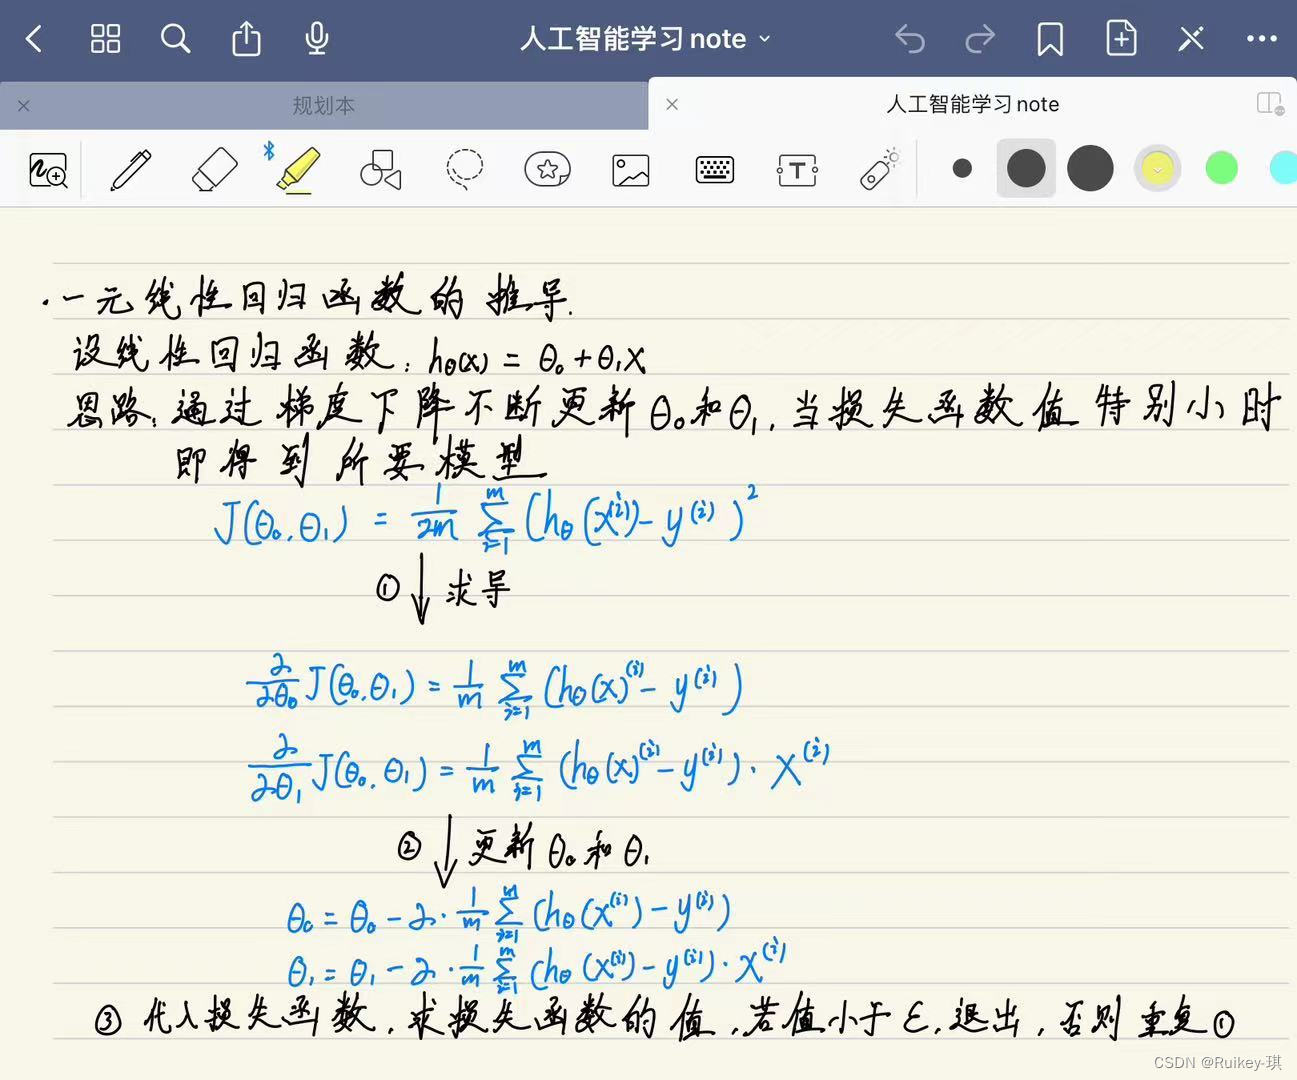 人工智能学习note
规划本
人工智能学习note
·一元线性回归函数的推导.
设线性回归函数: hθ(x) = θ₀ + θ₁x
思路: 通过梯度下降不断更新θ₀和θ₁, 当损失函数值特别小时
即得到所要模型
J(θ₀, θ₁) = 1/2m ∑ᵢ₌₁ᵐ (hθ(x⁽ⁱ⁾) - y⁽ⁱ⁾)²
① ↓ 求导
∂/∂θ₀ J(θ₀, θ₁) = 1/m ∑ᵢ₌₁ᵐ (hθ(x)⁽ⁱ⁾ - y⁽ⁱ⁾)
∂/∂θ₁ J(θ₀, θ₁) = 1/m ∑ᵢ₌₁ᵐ (hθ(x)⁽ⁱ⁾ - y⁽ⁱ⁾) · x⁽ⁱ⁾
② ↓ 更新 θ₀ 和 θ₁
θ₀ = θ₀ - ∂ · 1/m ∑ᵢ₌₁ᵐ (hθ(x⁽ⁱ⁾) - y⁽ⁱ⁾)
θ₁ = θ₁ - ∂ · 1/m ∑ᵢ₌₁ᵐ (hθ(x⁽ⁱ⁾) - y⁽ⁱ⁾) · x⁽ⁱ⁾
③ 代入损失函数, 求损失函数的值, 若值小于 ε, 退出, 否则重复①
CSDN @Ruikey-琪